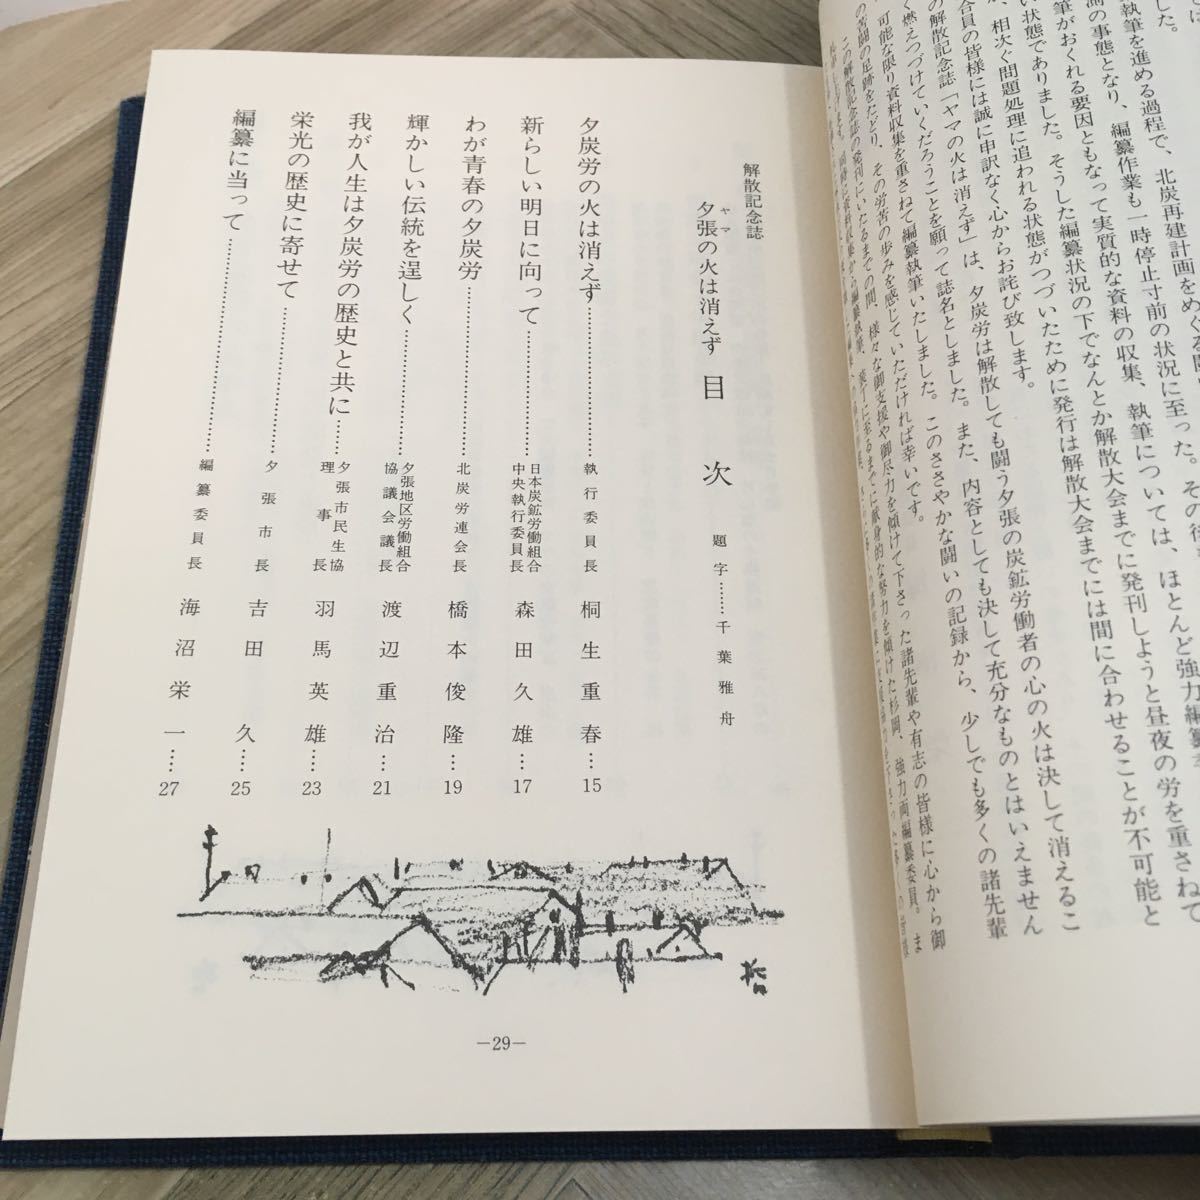 した。
執筆を進める過程で、北炭再建計画をめぐる
測の事態となり、編纂作業も一時停止寸前の状況に至った。その
筆がおくれる要因ともなって実質的な資料の収集、執筆については、ほとんど強力編纂
い状態でありました。そうした編纂状況の下でなんとか解散大会までに発刊しようと昼夜の労を重さねて
、相次ぐ問題処理に追われる状態がつづいたために発行は解散大会までには間に合わせることが不可能と
合員の皆様には誠に申訳なく心からお詫び致します。
の解散記念誌「ヤマの火は消えず」は、夕炭労は解散しても闘う夕張の炭鉱労働者の心の火は決して消えるこ
く燃えつづけていくだろうことを願って誌名としました。また、内容としても決して充分なものとはいえません
可能な限り資料収集を重さねて編纂執筆いたしました。このささやかな闘いの記録から、少しでも多くの諸先輩
の苦闘の足跡をたどり、その労苦の歩みを感じていただければ幸いです。
この解散記念誌の発刊にいたるまでの間、様々な御支援や御尽力を傾けて下さった諸先輩や有志の皆様に心から御
解散記念誌
夕張の火は消えず 目次
ヤマ
題字……千葉雅舟
夕炭労の火は消えず……執行委員長 桐生重春…15
新らしい明日に向って……日本炭鉱労働組合中央執行委員長 森田久雄…17
わが青春の夕炭労……北炭労連会長 橋本俊隆…19
輝かしい伝統を逞しく……夕張地区労働組合協議会議長 渡辺重治…21
我が人生は夕炭労の歴史と共に……夕張市民生協理事長 羽馬英雄…23
栄光の歴史に寄せて……夕張市長 吉田久…25
編纂に当って……編纂委員長 海沼栄一…27
—29—